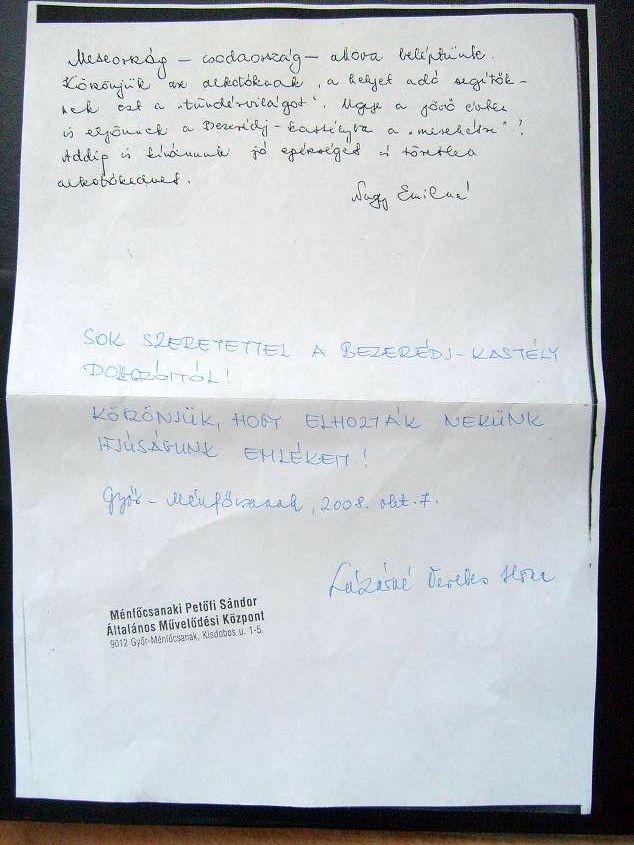 Meseország – csodaország – ahova beléptünk.
Köszönjük az alkotóknak, a helyet adó segítők-
nek ezt a „tündérvilágot". Ugye a jövő évben
is eljönnek a Bezerédj-kastélyba a „mesekészre"?
Addig is kívánunk jó egészséget és töretlen
alkotókedvet.
Nagy Emilné
SOK SZERETETTEL A BEZERÉDJ-KASTÉLY
DOLGOZÓITÓL!
KÖSZÖNJÜK, HOGY ELHOZTÁK NEKÜNK
IFJÚSÁGUNK EMLÉKEIT!
Győr-Ménfőcsanak, 2008. okt. 7.
Lázárné
Ménfőcsanaki Petőfi Sándor
Általános Művelődési Központ
9012 Győr-Ménfőcsanak, Kisdobos u. 1-5.